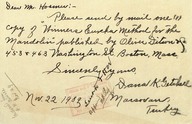 Dear Mr. Homeyer:—
Please send by mail one (1)
copy of "Winners Eureka Method for the
Mandolin" published by Oliver Ditson Co
453 & 463 Washington St. Boston, Mass.
Sincerely yours
Dana K. Getchell
Marsovan,
Turkey
Nov. 22, 1933